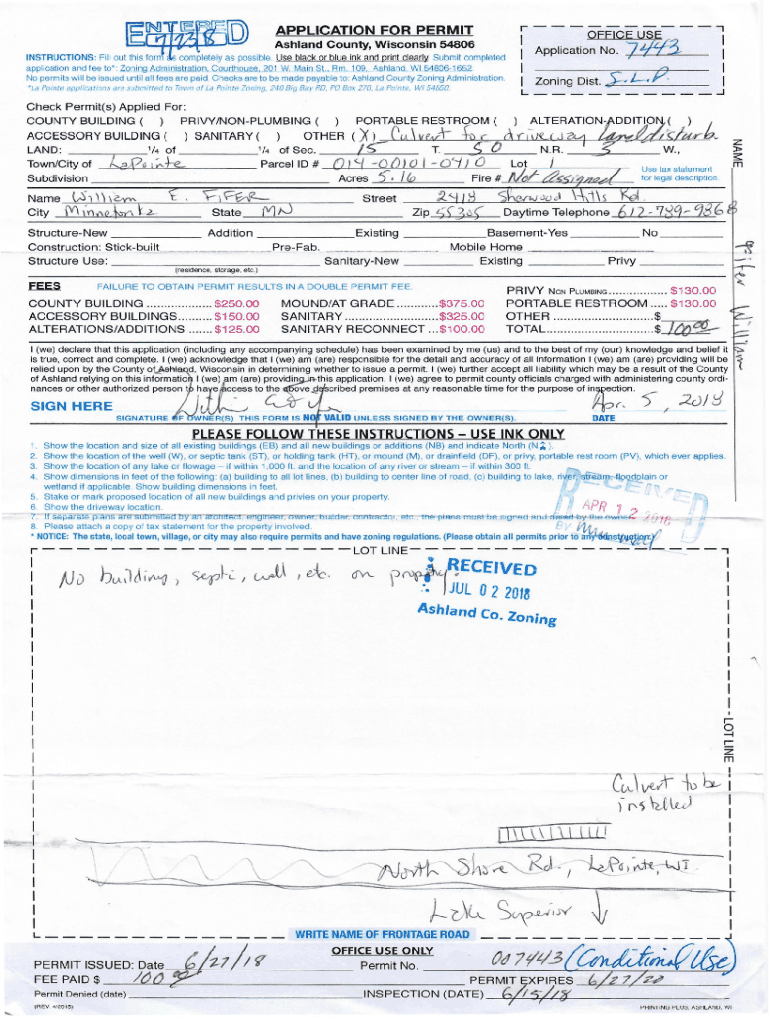 ENTERED
7/23/18
APPLICATION FOR PERMIT
Ashland County, Wisconsin 54806
INSTRUCTIONS: Fill out this form as completely as possible. Use black or blue ink and print clearly. Submit completed
application and fee to*: Zoning Administration, Courthouse, 201 W. Main St., Rm. 109, Ashland, WI 54806-1652
No permits will be issued until all fees are paid. Checks are to be made payable to: Ashland County Zoning Administration.
*La Pointe applications are submitted to Town of La Pointe Zoning, 240 Big Bay RD, PO Box 270, La Pointe, WI 54850.
OFFICE USE
Application No. 7443
Zoning Dist. S.L.P.
Check Permit(s) Applied For:
COUNTY BUILDING ( ) PRIVY/NON-PLUMBING ( ) PORTABLE RESTROOM ( ) ALTERATION-ADDITION ( )
ACCESSORY BUILDING ( ) SANITARY ( ) OTHER (X) Culvert for driveway land disturb.
LAND: 1/4 of 1/4 of Sec. 15 T. 50 N.R. 3 W.,
Town/City of LaPointe Parcel ID # 014-00101-0410 Lot 1
Subdivision Acres 5.16 Fire # Not Assigned
Use tax statement
for legal description.
Name William E. FIFER Street 2418 Sherwood Hills Rd.
City Minnetonka State MN Zip 55305 Daytime Telephone 612-789-9868
Structure-New Addition Existing Basement-Yes No
Construction: Stick-built Pre-Fab. Mobile Home
Structure Use: Sanitary-New Existing Privy
(residence, storage, etc.)
NAME
William
FEES FAILURE TO OBTAIN PERMIT RESULTS IN A DOUBLE PERMIT FEE.
COUNTY BUILDING ................ $250.00
ACCESSORY BUILDINGS........ $150.00
ALTERATIONS/ADDITIONS ....... $125.00
MOUND/AT GRADE ............$375.00
SANITARY .......................$325.00
SANITARY RECONNECT ...$100.00
PRIVY NON PLUMBING ............... $130.00
PORTABLE RESTROOM ..... $130.00
OTHER ........................ $
TOTAL.......................... $ 100.00
I (we) declare that this application (including any accompanying schedule) has been examined by me (us) and to the best of my (our) knowledge and belief it
is true, correct and complete. I (we) acknowledge that I (we) am (are) responsible for the detail and accuracy of all information I (we) am (are) providing will be
relied upon by the County of Ashland, Wisconsin in determining whether to issue a permit. I (we) further accept all liability which may be a result of the County
of Ashland relying on this information I (we) am (are) providing in this application. I (we) agree to permit county officials charged with administering county ordi-
nances or other authorized person to have access to the above described premises at any reasonable time for the purpose of inspection.
SIGN HERE
Apr. 5, 2018
SIGNATURE OF OWNER(S). THIS FORM IS NOT VALID UNLESS SIGNED BY THE OWNER(S). DATE
PLEASE FOLLOW THESE INSTRUCTIONS – USE INK ONLY
1. Show the location and size of all existing buildings (EB) and all new buildings or additions (NB) and indicate North (N).
2. Show the location of the well (W), or septic tank (ST), or holding tank (HT), or mound (M), or drainfield (DF), or privy, portable rest room (PV), which ever applies.
3. Show the location of any lake or flowage – if within 1,000 ft. and the location of any river or stream – if within 300 ft.
4. Show dimensions in feet of the following: (a) building to all lot lines, (b) building to center line of road, (c) building to lake, river, stream, floodplain or
wetland if applicable. Show building dimensions in feet.
5. Stake or mark proposed location of all new buildings and privies on your property.
6. Show the driveway location.
7. If separate plans are submitted by an architect, engineer, owner, builder, contractor, etc., the plans must be signed and dated by the owner.
8. Please attach a copy of tax statement for the property involved.
* NOTICE: The state, local town, village, or city may also require permits and have zoning regulations. (Please obtain all permits prior to any construction.)
RECEIVED
APR 12 2018
BY
LOT LINE
No building, septic, well, etc. on property.
RECEIVED
JUL 02 2018
Ashland Co. Zoning
LOT LINE
Culvert to be
installed
North Shore Rd., LaPointe, WI.
Lake Superior
WRITE NAME OF FRONTAGE ROAD
OFFICE USE ONLY
PERMIT ISSUED: Date 6/27/18 Permit No. 007443 (Conditional Use)
FEE PAID $ 100.00 PERMIT EXPIRES 6/27/20
Permit Denied (date) INSPECTION (DATE) 6/15/18
(REV. 4/2015) PRINTING PLUS, ASHLAND, WI